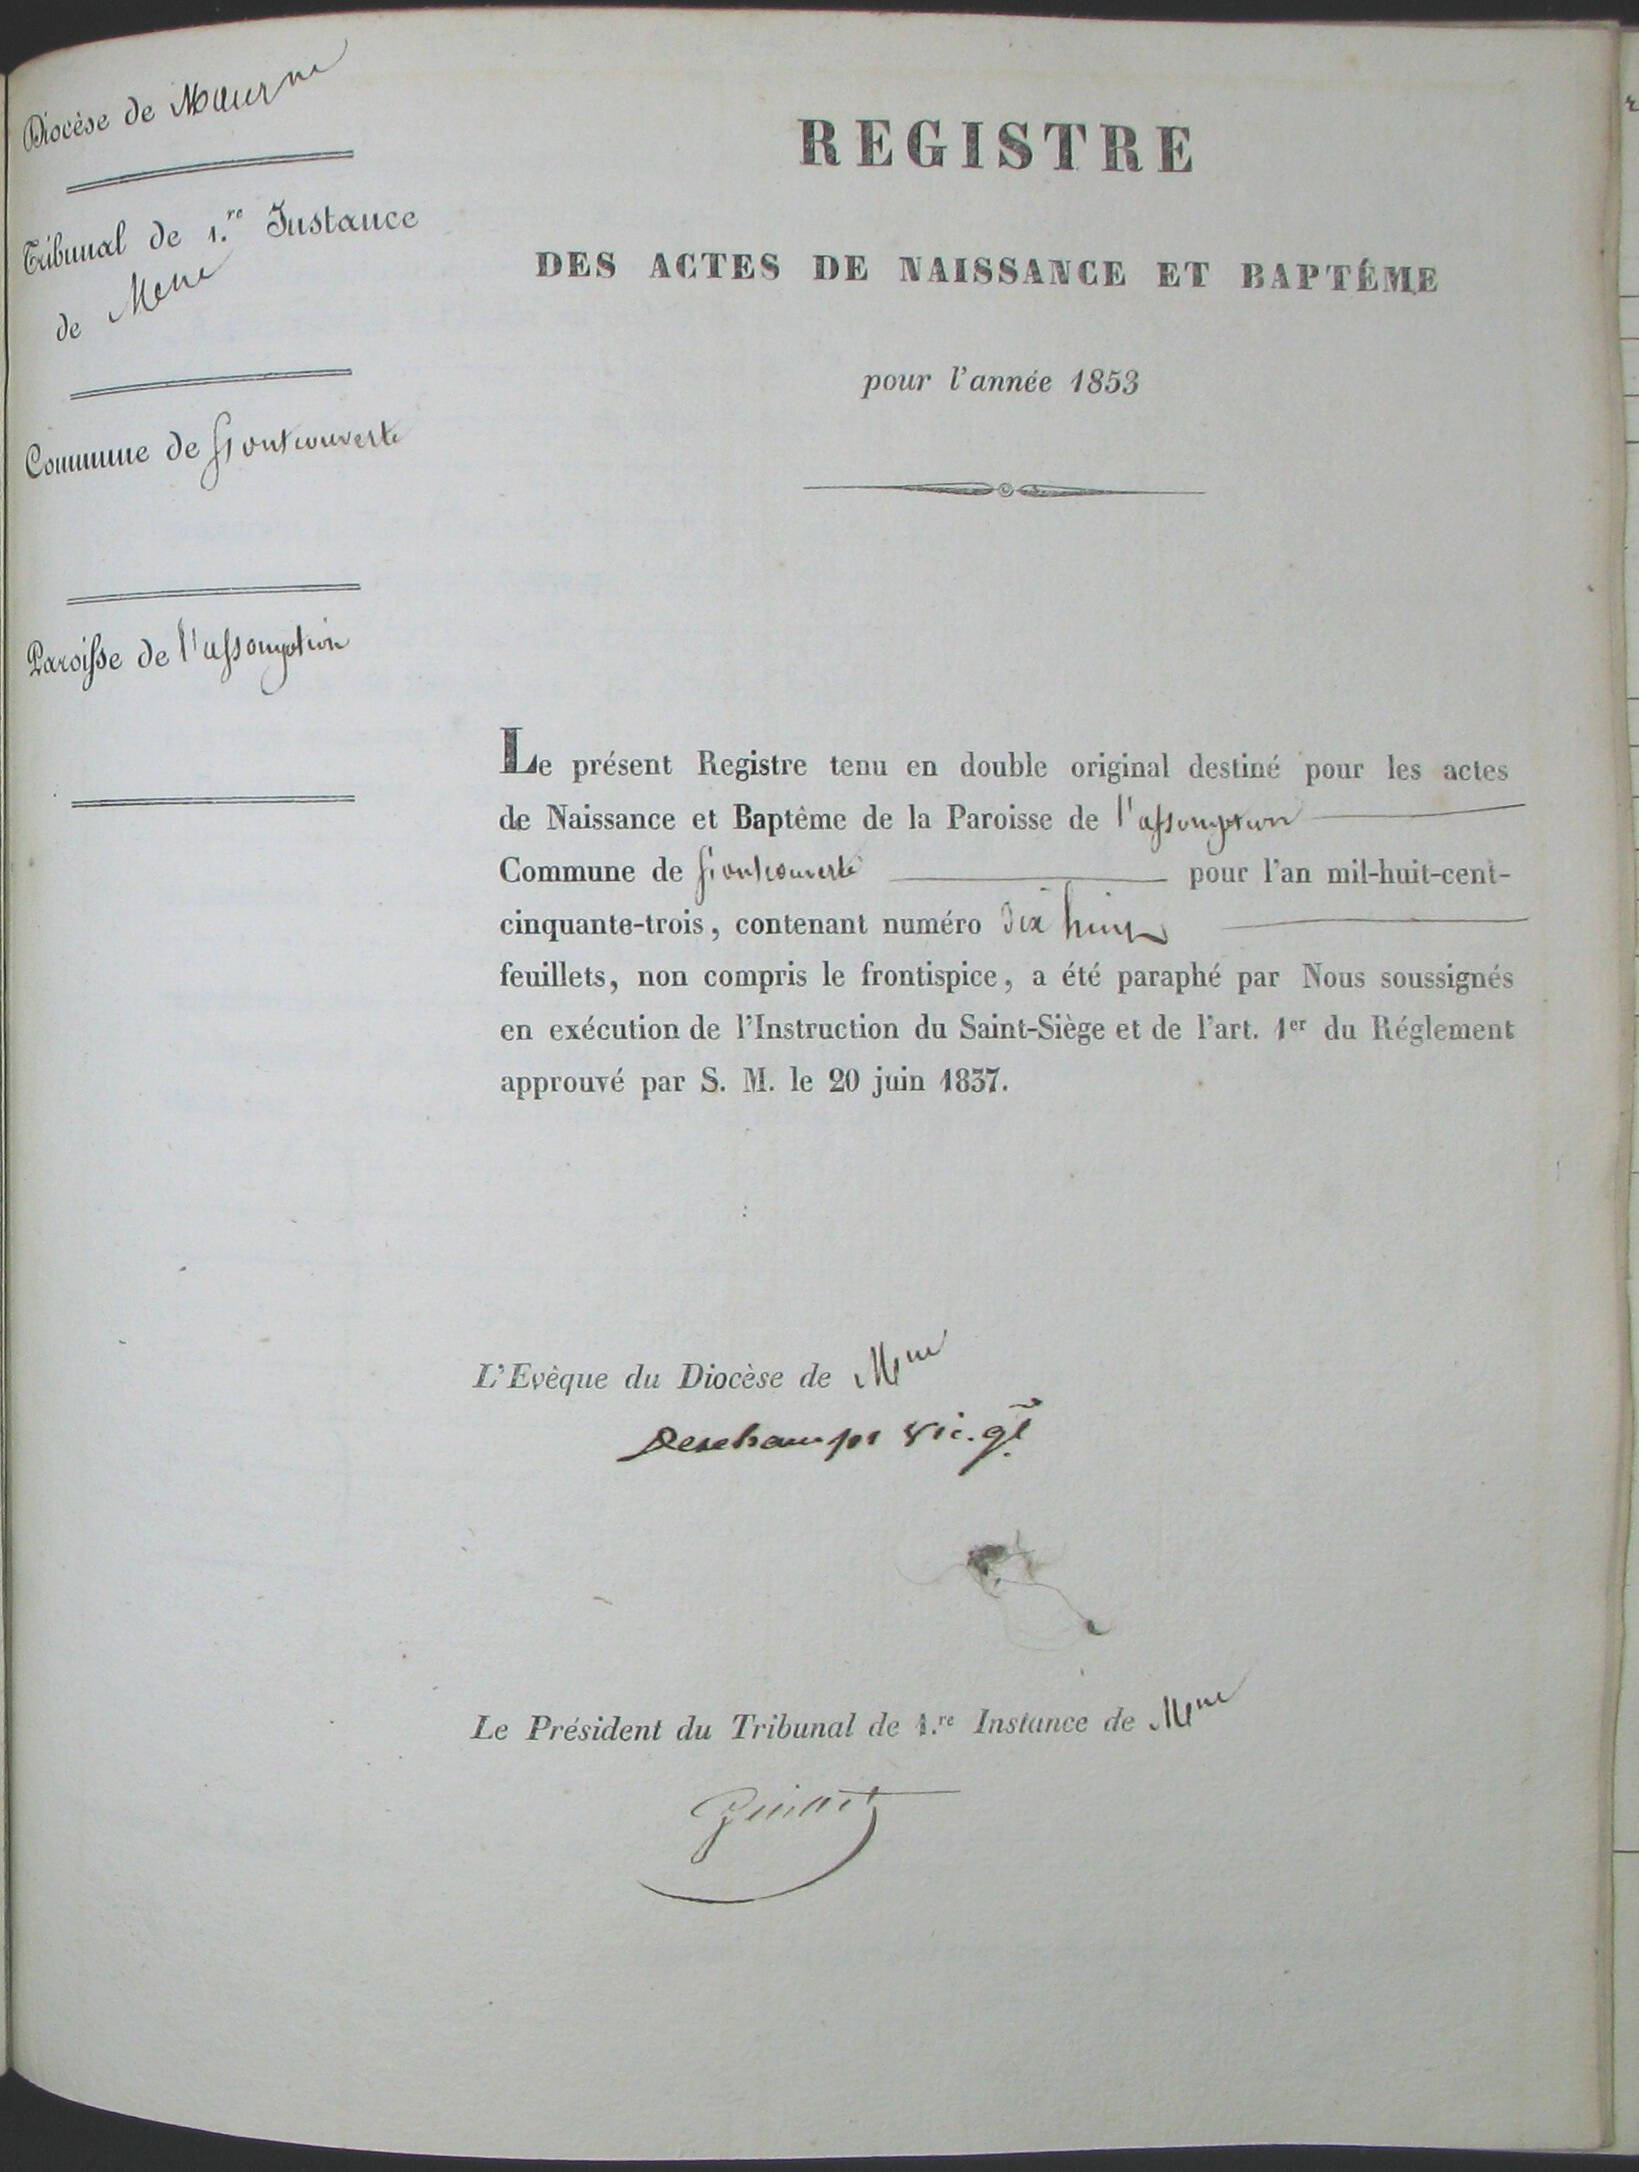 Diocèse de Maurne
Tribunal de 1.re Instance
de Mne
Commune de fontcouverte
Paroisse de l'assomption
REGISTRE
DES ACTES DE NAISSANCE ET BAPTÊME
pour l'année 1853
Le présent Registre tenu en double original destiné pour les actes
de Naissance et Baptême de la Paroisse de l'assomption
Commune de fontcouverte pour l'an mil-huit-cent-
cinquante-trois, contenant numéro dix huit
feuillets, non compris le frontispice, a été paraphé par Nous soussignés
en exécution de l'Instruction du Saint-Siège et de l'art. 1er du Réglement
approuvé par S. M. le 20 juin 1837.
L'Evèque du Diocèse de Mne
Deschamps Vic. gl
Le Président du Tribunal de 1.re Instance de Mne